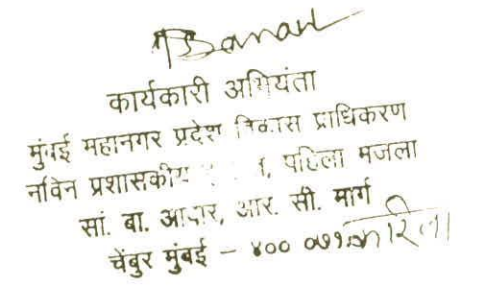 कार्यकारी अभियंता
मुंबई महानगर प्रदेश विकास प्राधिकरण
नविन प्रशासकीय पहिला मजला
सां. बा. आवार, आर. सी. मार्ग
चेंबुर मुंबई - ४०० ०७१.